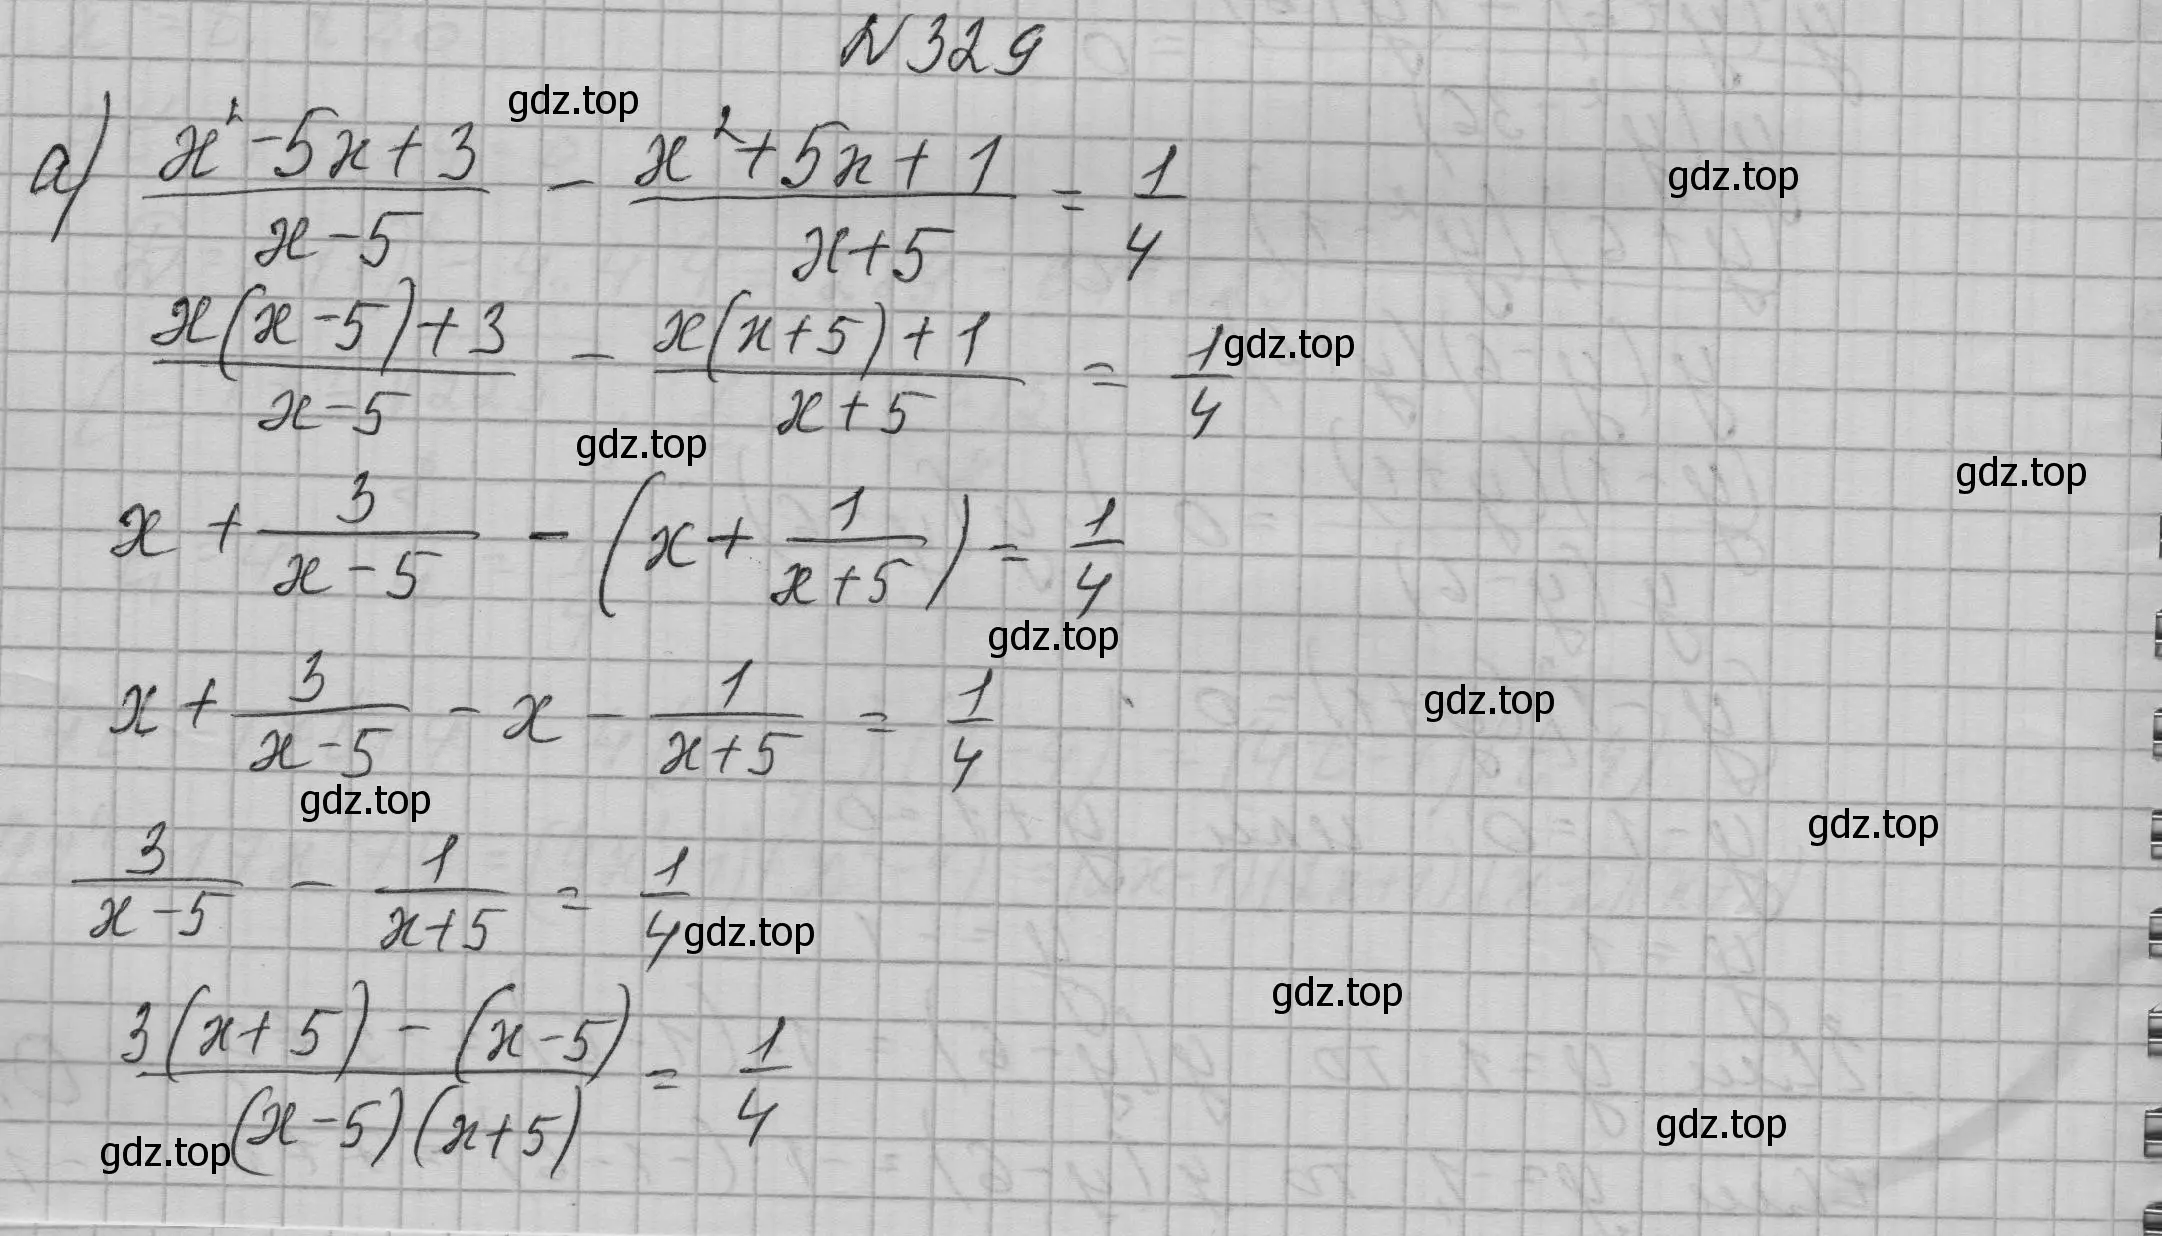 N 329
gdz.top
а) (x² - 5x + 3)/(x - 5) - (x² + 5x + 1)/(x + 5) = 1/4
gdz.top
(x(x - 5) + 3)/(x - 5) - (x(x + 5) + 1)/(x + 5) = 1/4
gdz.top
gdz.top
gdz.top
x + 3/(x - 5) - (x + 1/(x + 5)) = 1/4
gdz.top
x + 3/(x - 5) - x - 1/(x + 5) = 1/4
gdz.top
gdz.top
gdz.top
3/(x - 5) - 1/(x + 5) = 1/4
gdz.top
gdz.top
(3(x + 5) - (x - 5))/((x - 5)(x + 5)) = 1/4
gdz.top
gdz.top